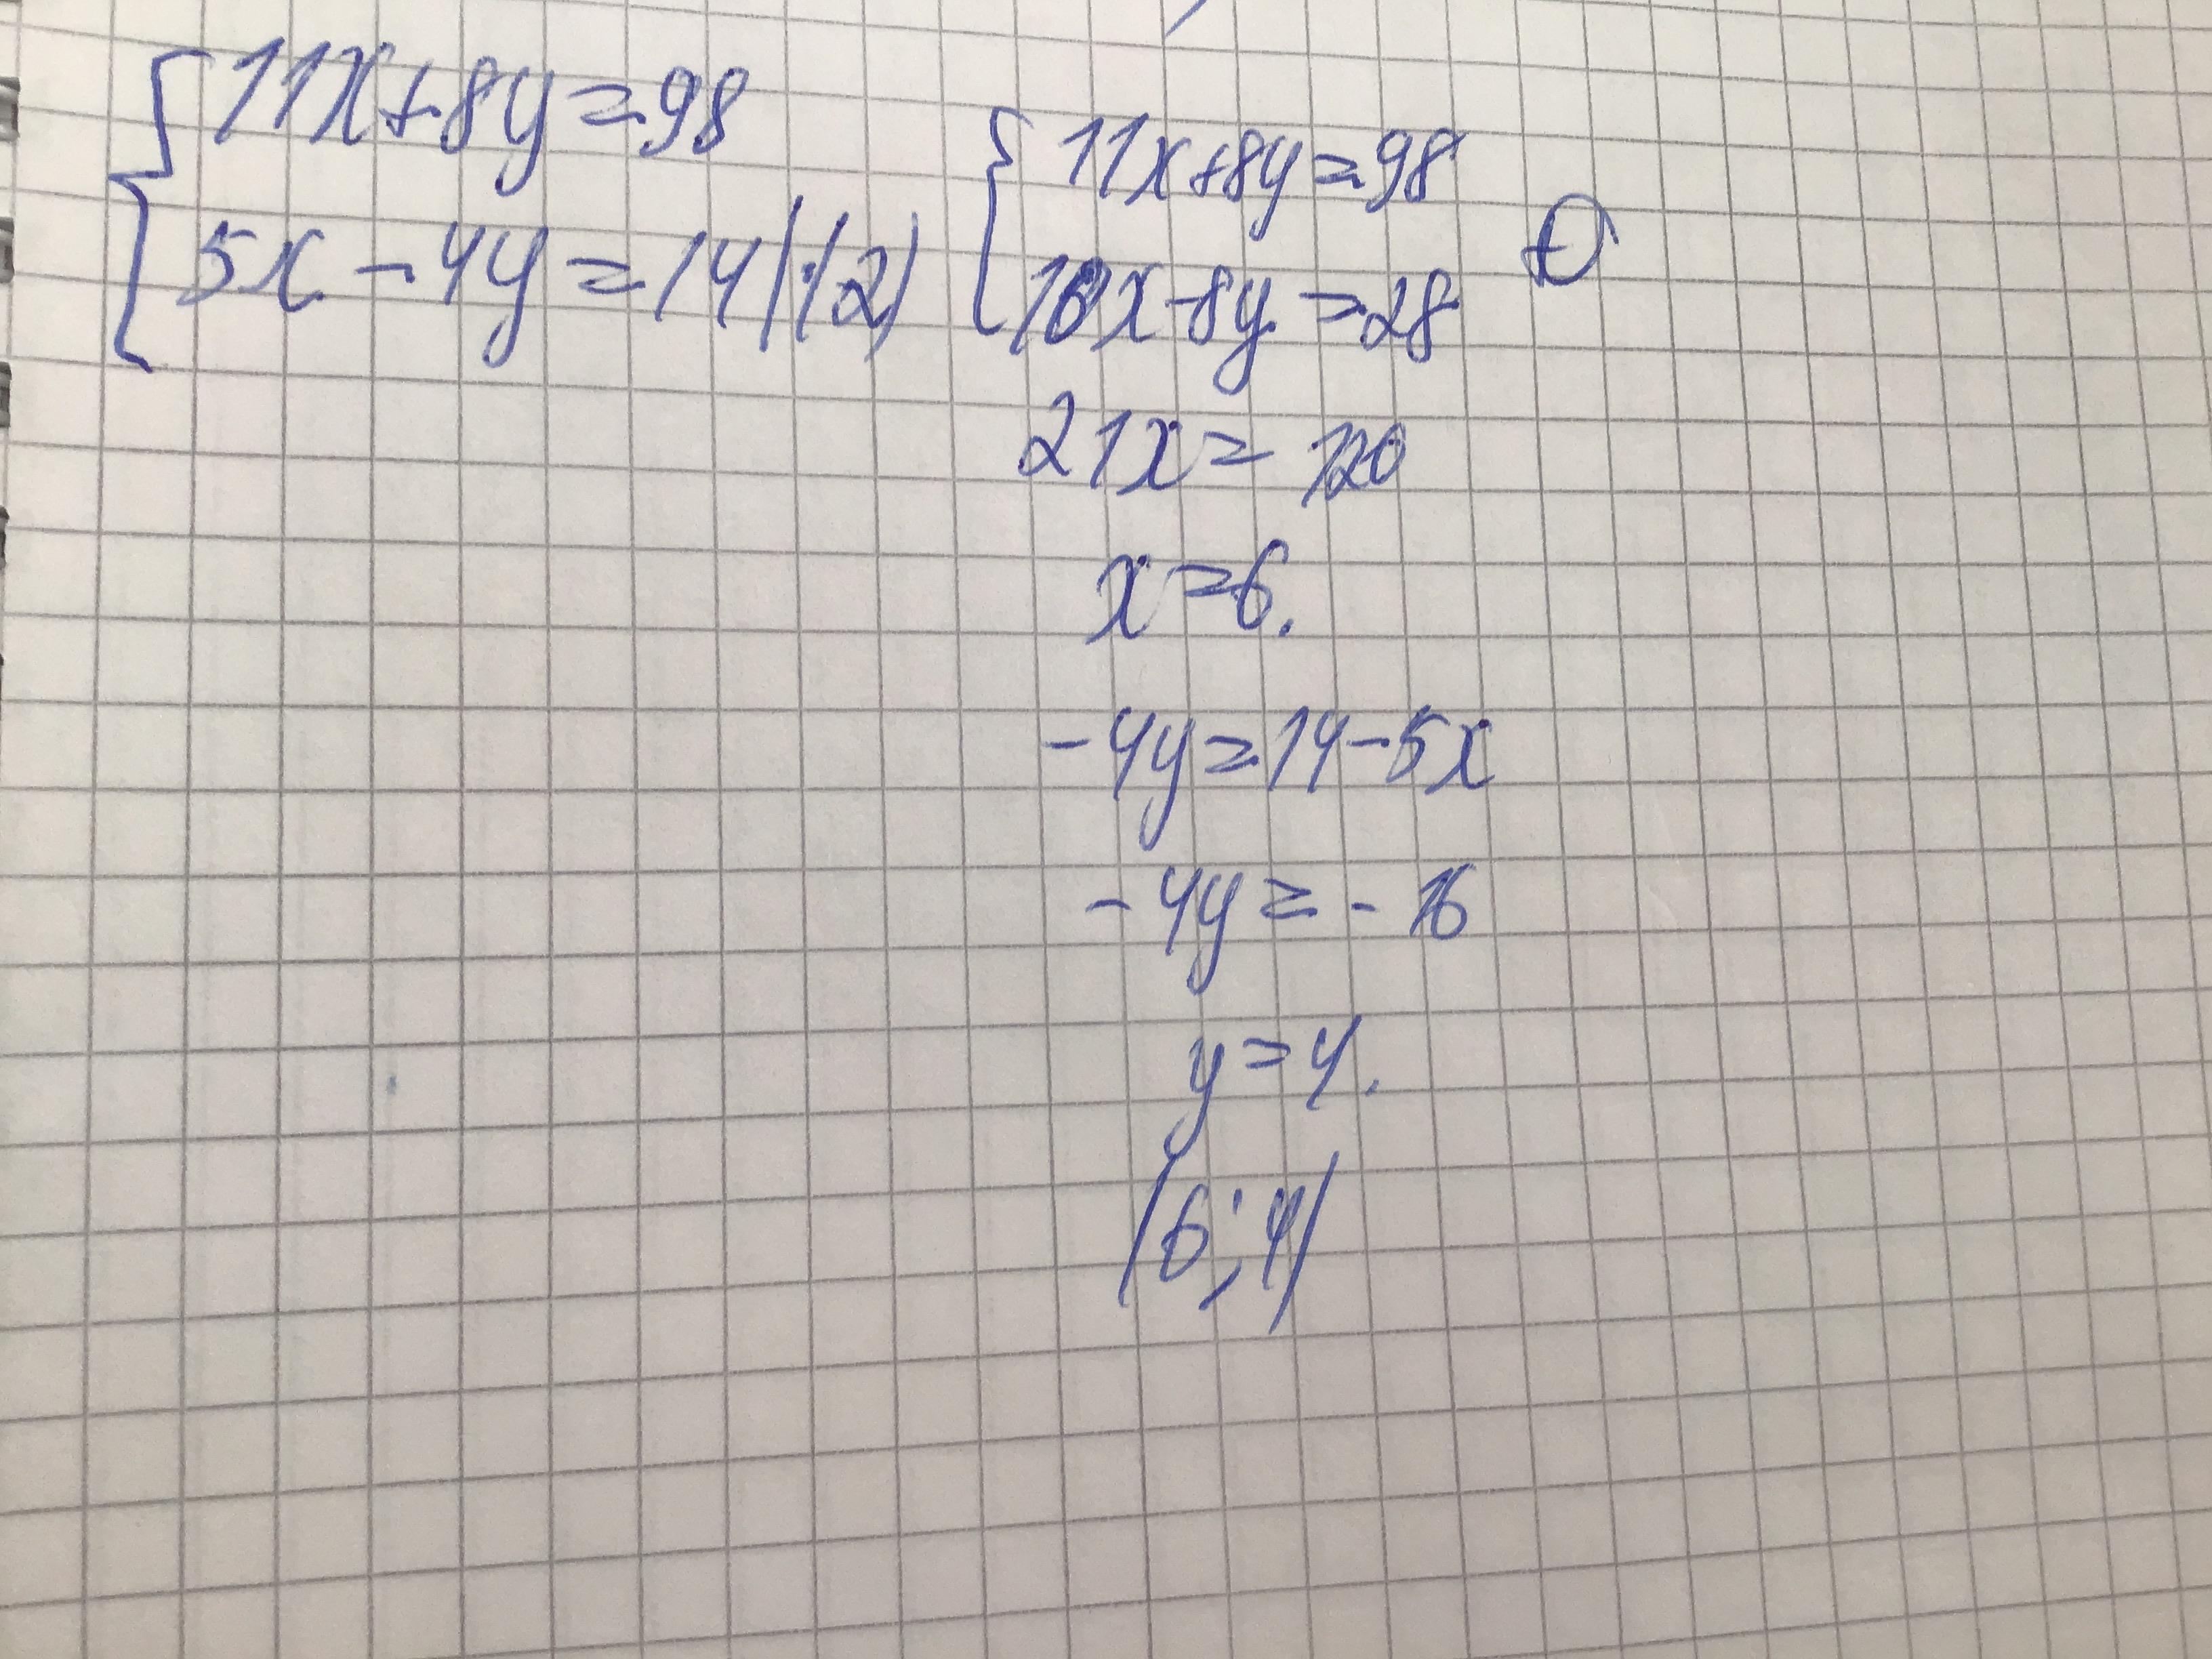 11x+8y=98
5x-4y=14|(·2)
11x+8y=98
10x-8y=28
21x=120
x=6.
-4y=14-5x
-4y=-16
y=4.
(6;4)